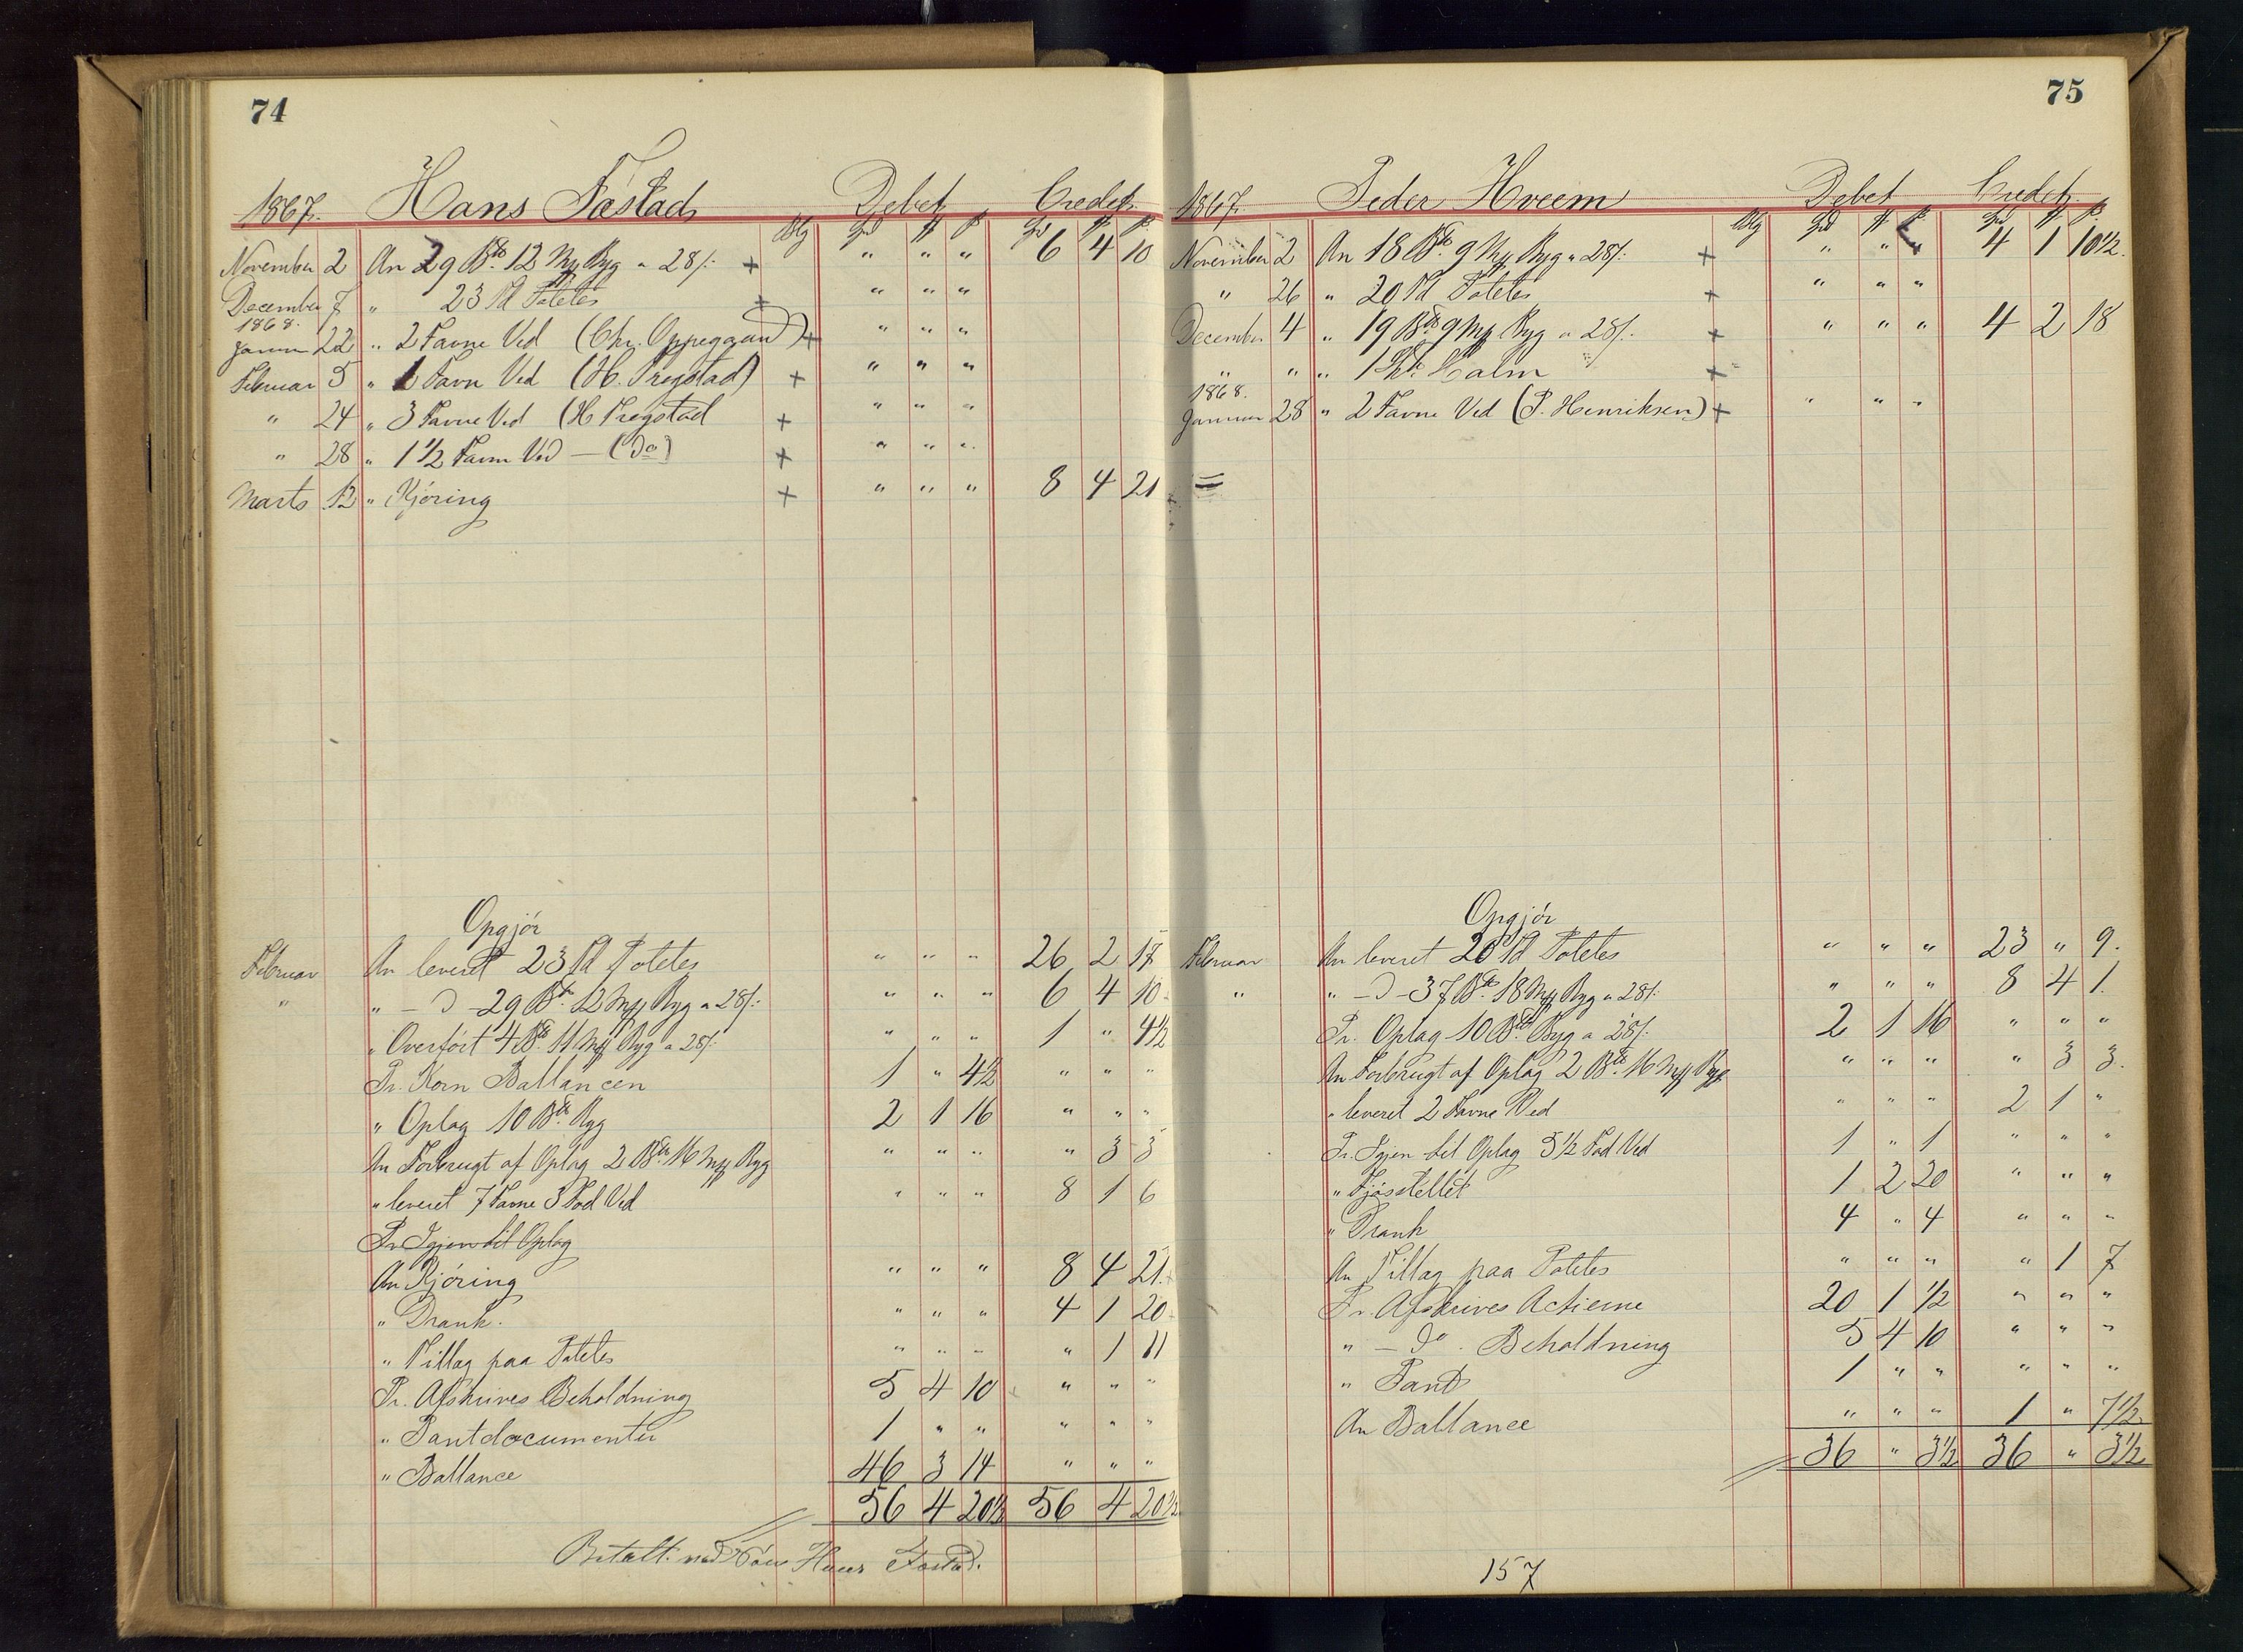 74
1867. Hans Fæstad Debet Credet
Blg Spd # ß Spd # ß
November 2 An 29 Bto. 12 Mp Byg a 28/: + " " " 6 4 10
December 7 " 23 Td Potetes + " " "
1868.
Januar 22 " 2 Favne Ved (Chr. Oppegaard) + " " "
Februar 5 " 1 Favn Ved (H. Fregstad) + " " "
" 24 " 3 Favne Ved (H Fregstad + " " "
" 28 " 1 1/2 Favn Ved — (Do) + " " "
Marts 12 " Kjöring + " " " 8 4 21
Opgjör
Februar An leveret 23 Td Potetes " " " 26 2 17
" " — D - 29 Bto. 12 Mp Byg a 28/: " " " 6 4 10
" Overfört 4 Bto. 11 Mp Byg a 28/: " " " 1 " 4 1/2
Pr. Korn Ballancen 1 " 4 1/2 " " "
" Oplag 10 Bto Byg 2 1 16 " " "
An Forbrugt af Oplag 2 Bto 16 Mp Byg " " " " 3 3
" leveret 7 Favne 3 Fod Ved " " " 8 1 6
Pr. Igjen til Oplag
An Kjöring " " " 8 4 21
" Drank. " " " 4 1 20
" Tillag paa Potetes " " " " 1 11
Pr. Afskrives Beholdning 5 4 10 " " "
" Pantdocumenter 1 " " " " "
" Ballance 46 3 14 " " "
56 4 20 1/2 56 4 20 1/2
Betalt Hans Fæstad.
75
1867. Peder Hveem Debet Credet
Blg Spd # ß Spd # ß
November 2 An 18 Bto. 9 Mp Byg a 28/: + " " " 4 1 10 1/2.
" 26 " 20 Td Potetes + " " "
December 4 " 19 Bto 9 Mp Byg a 28/: + " " " 4 2 18
" " " 1 Halm +
1868.
Januar 28 " 2 Favne Ved (P. Henriksen) + " " "
Opgjör
Februar An leveret 20 Td Potetes " " " 23 " 9.
" " — D - 37 Bto. 18 Mp Byg a 28/: " " " 8 4 1.
Pr. Oplag 10 Bto. Byg a 28/: 2 1 16 " " "
An Forbrugt af Oplag 2 Bto. 16 Mp Byg " " " " 3 3.
" leveret 2 Favne Ved " " " 2 1 "
Pr. Igjen til Oplag 5 1/2 Fod Ved 1 " 1 " " "
" Fjösstellet 1 2 20 " " "
" Drank 4 " 4 " " "
An Tillag paa Potetes " " " " 1 7
Pr. Afskrives Actierne 20 1 1/2 " " "
" — Do. Beholdning 5 4 10 " " "
" Pant 1 " " " " "
An Ballance " " " 1 " 7 1/2
36 " 3 1/2 36 " 3 1/2
157